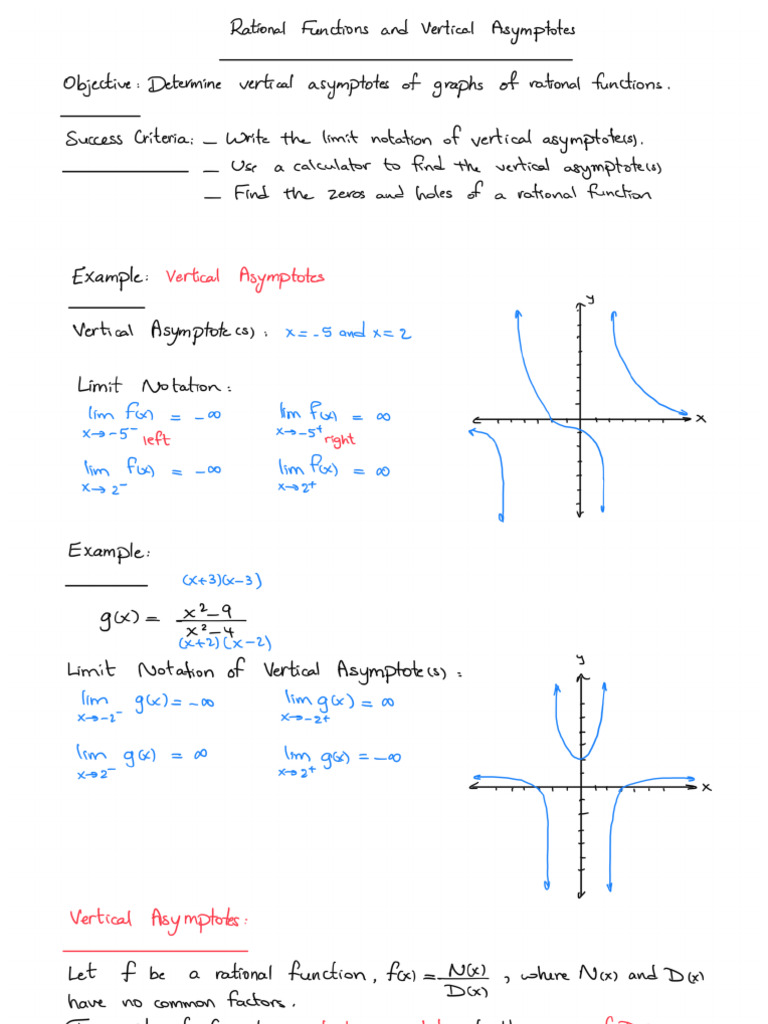 Rational Functions and Vertical Asymptotes
Objective: Determine vertical asymptotes of graphs of rational functions.
Success Criteria: – Write the limit notation of vertical asymptote(s).
– Use a calculator to find the vertical asymptote(s)
– Find the zeros and holes of a rational function
Example: Vertical Asymptotes
y
Vertical Asymptote(s): x=-5 and x=2
Limit Notation:
lim f(x) = -∞ lim f(x) = ∞
x→-5⁻ left x→-5⁺ right
x
lim f(x) = -∞ lim f(x) = ∞
x→2⁻ x→2⁺
Example:
(x+3)(x-3)
g(x) = x²-9
x²-4
(x+2)(x-2)
Limit Notation of Vertical Asymptote(s):
y
lim g(x) = -∞ lim g(x) = ∞
x→-2⁻ x→-2⁺
lim g(x) = ∞ lim g(x) = -∞
x→2⁻ x→2⁺
x
Vertical Asymptotes:
Let f be a rational function, f(x) = N(x)/D(x), where N(x) and D(x)
have no common factors.